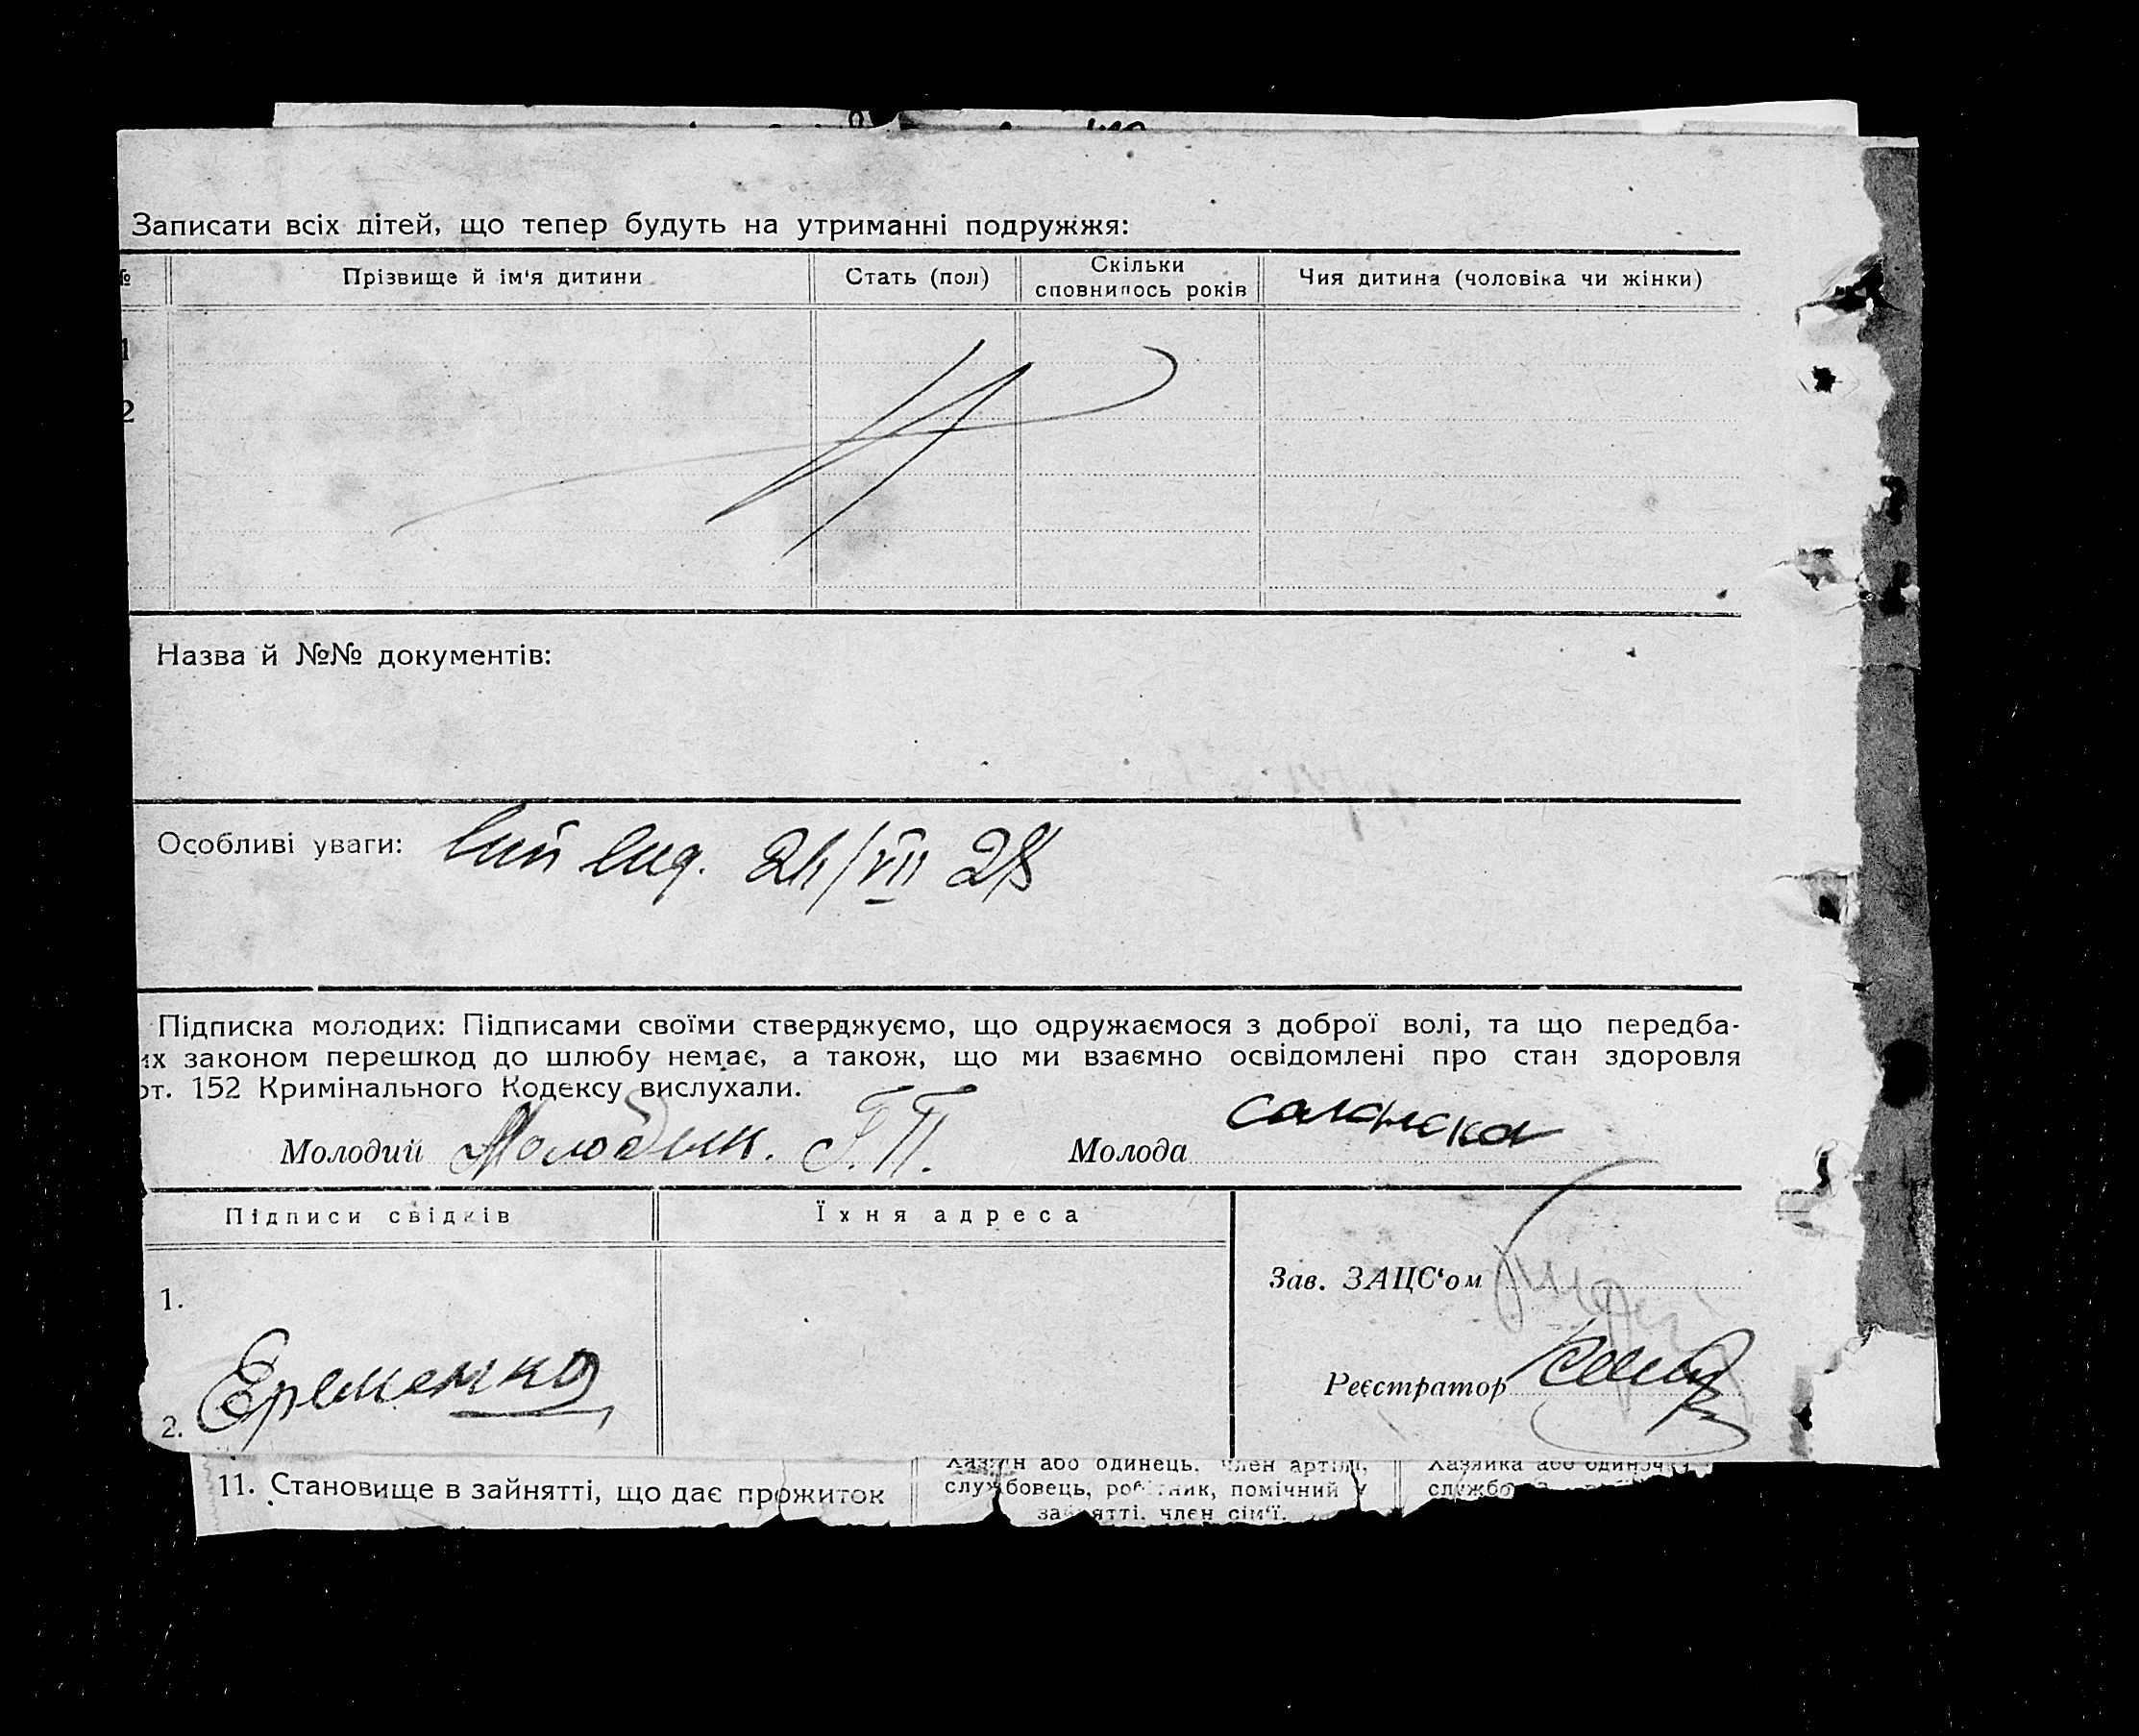 Записати всіх дітей, що тепер будуть на утриманні подружжя:
№ Прізвище й ім'я дитини Стать (пол) Скільки сповнилось років Чия дитина (чоловіка чи жінки)
1
2
Назва й №№ документів:
Особливі уваги: вид. 24/VII 28
Підписка молодих: Підписами своїми стверджуємо, що одружаємося з доброї волі, та що передба-
их законом перешкод до шлюбу немає, а також, що ми взаємно освідомлені про стан здоровля
от. 152 Кримінального Кодексу вислухали.
Молодий Г.П. Молода
Підписи свідків Їхня адреса
Зав. ЗАЦС'ом
1.
Еременко
Реєстратор
2.
11. Становище в зайнятті, що дає прожиток
Хазяїн або одинець, член артілі,
службовець, робітник, помічний у
зайнятті, член сім'ї.
Хазяйка або одиночка